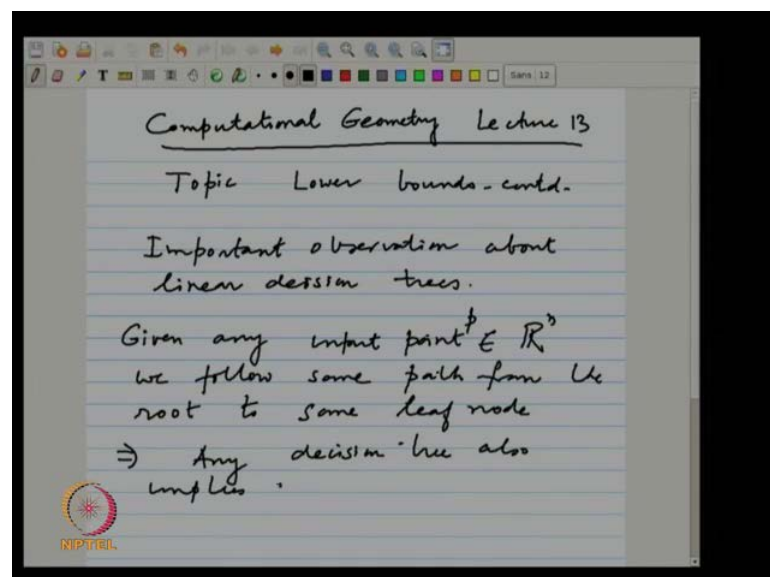 Sans 12
Computational Geometry Lecture 13
Topic Lower bounds - contd.
Important observation about
linear decision trees.
Given any input point p ∈ ℝⁿ
we follow some path from the
root to some leaf node
⇒ Any decision tree also
implies
NPTEL